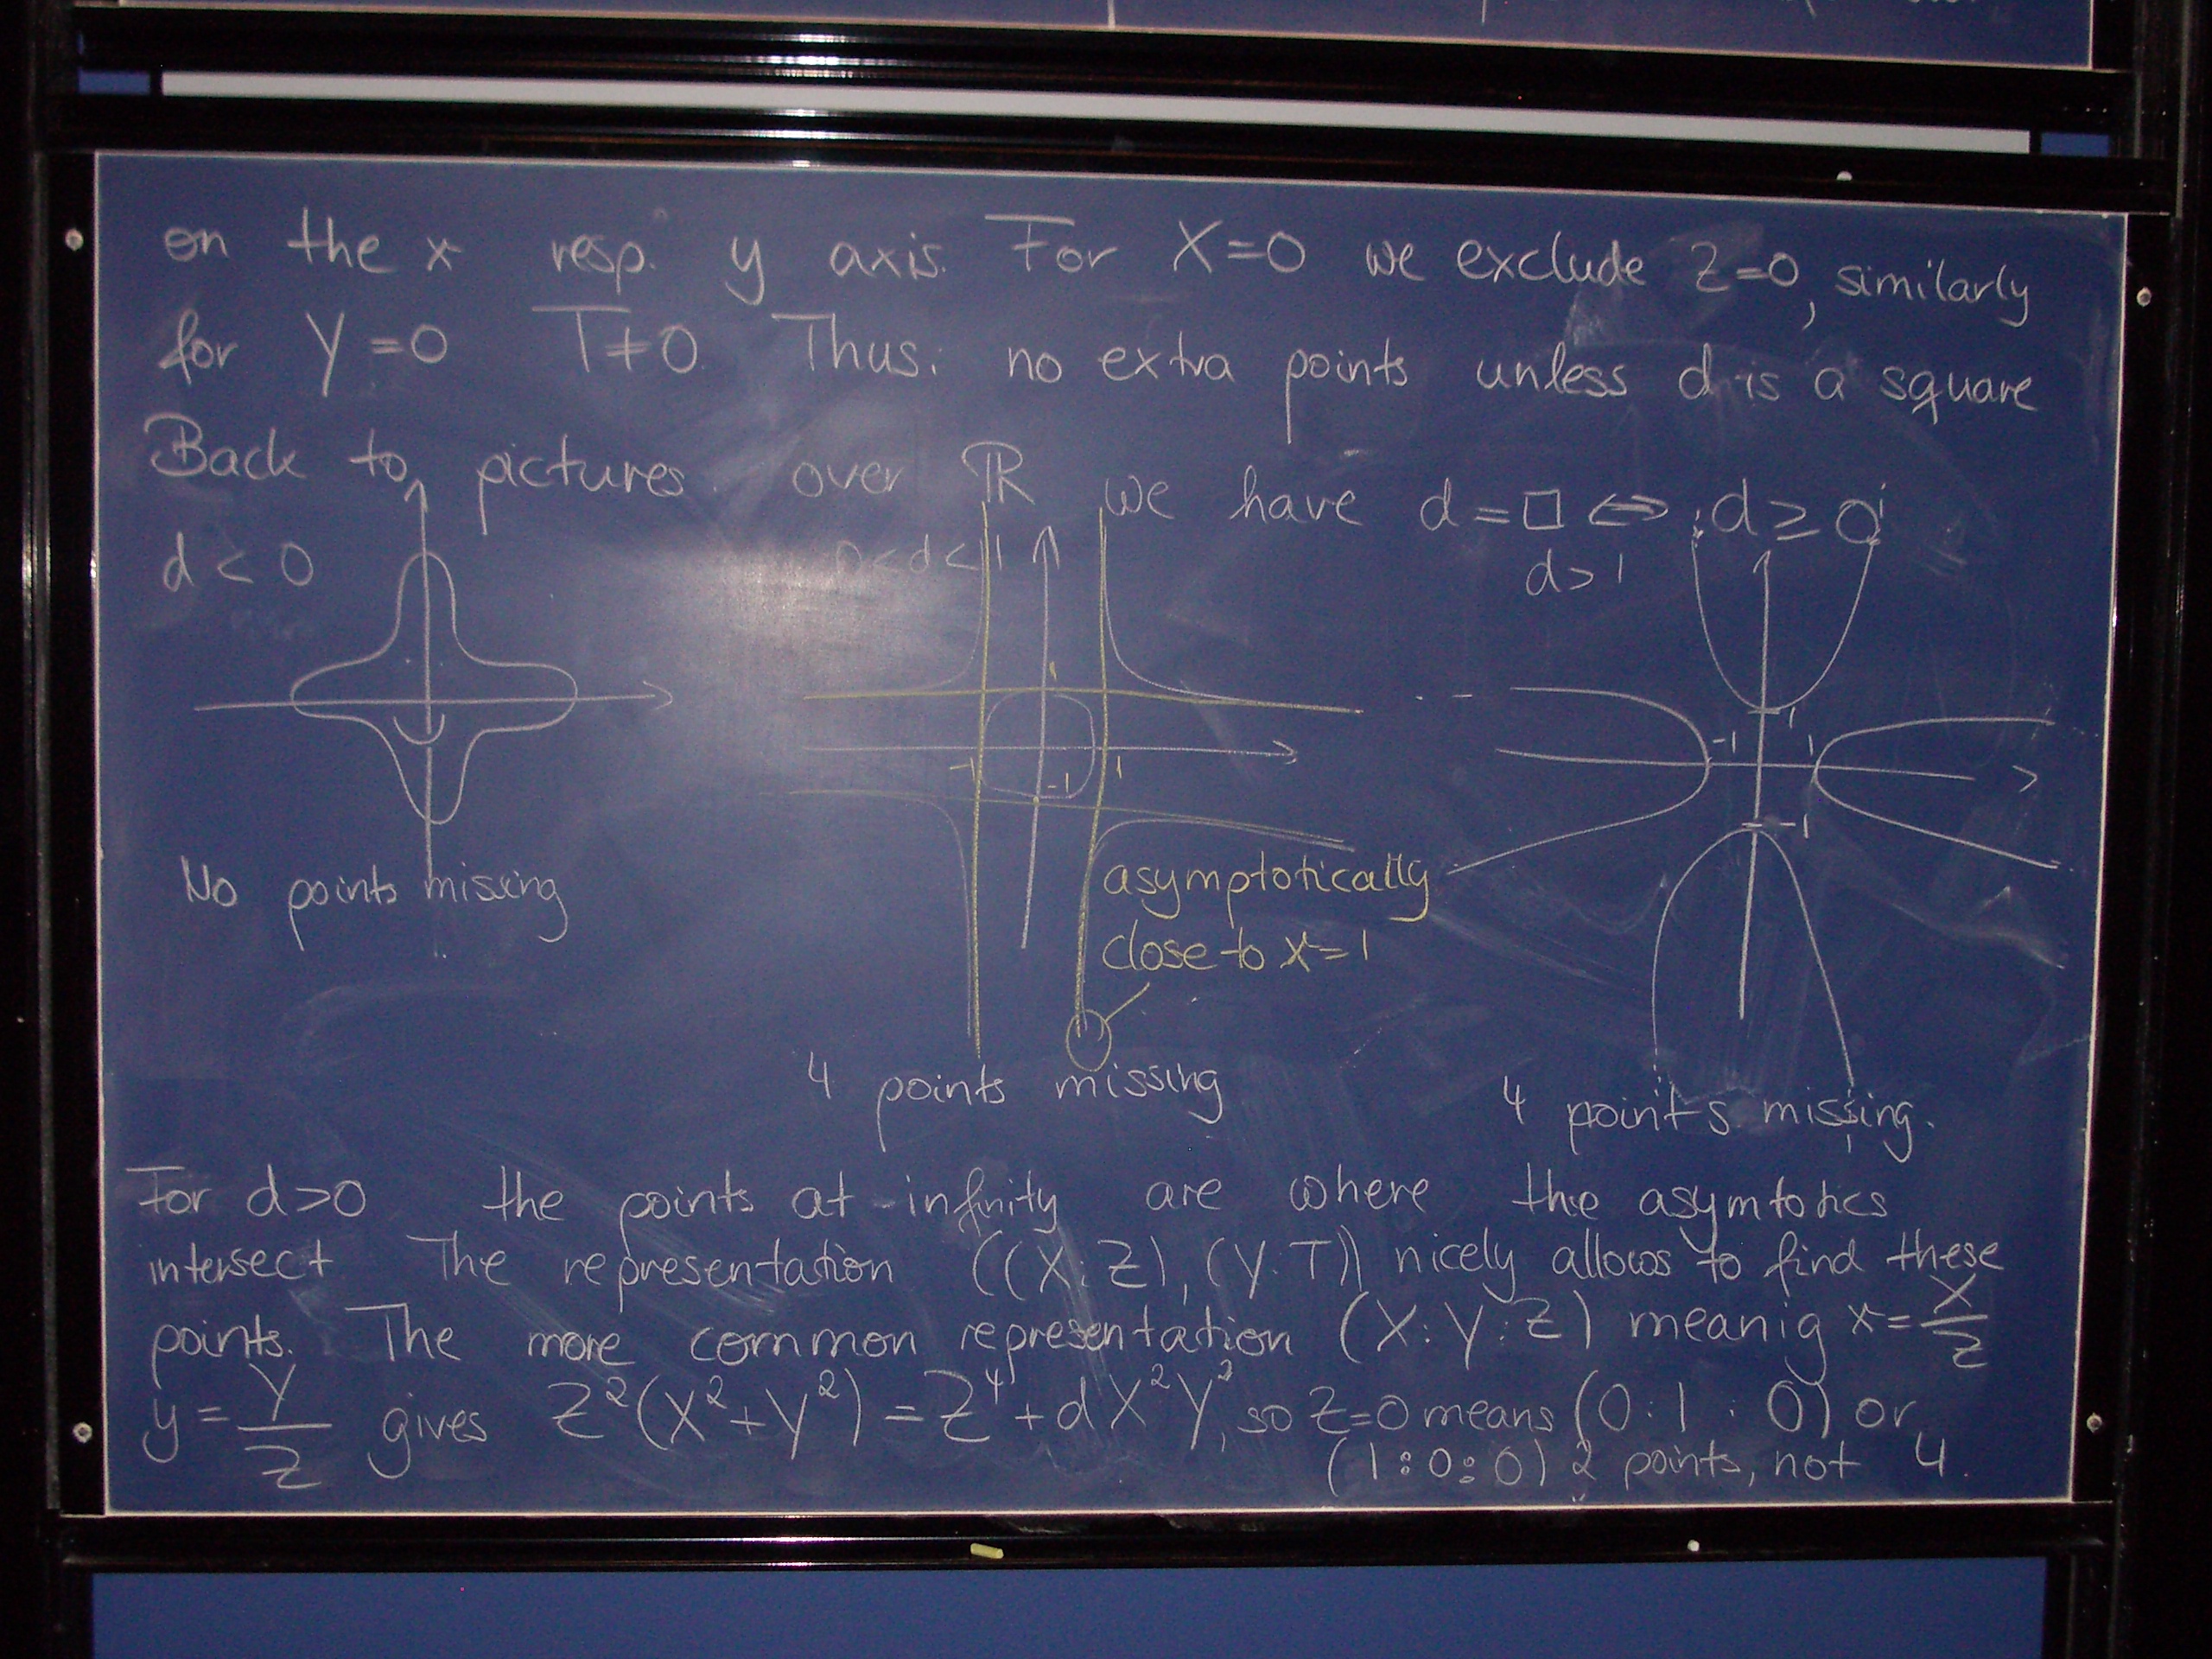 on the x resp. y axis. For X=0 we exclude Z=0, similarly
for Y=0 T≠0. Thus: no extra points unless d is a square
Back to pictures. over ℝ we have d=□ ⇔ d≥0
d<0
0<d<1
d>1
1
-1
1
-1
1
-1
1
-1
No points missing
asymptotically
close to x=1
4 points missing
4 points missing.
For d>0 the points at infinity are where the asymtotics
intersect The representation ((X:Z),(Y:T)) nicely allows to find these
points. The more common representation (X:Y:Z) meanig x=X/Z
y=Y/Z gives Z²(X²+Y²)=Z⁴+dX²Y², so Z=0 means (0:1:0) or
(1:0:0) 2 points, not 4.